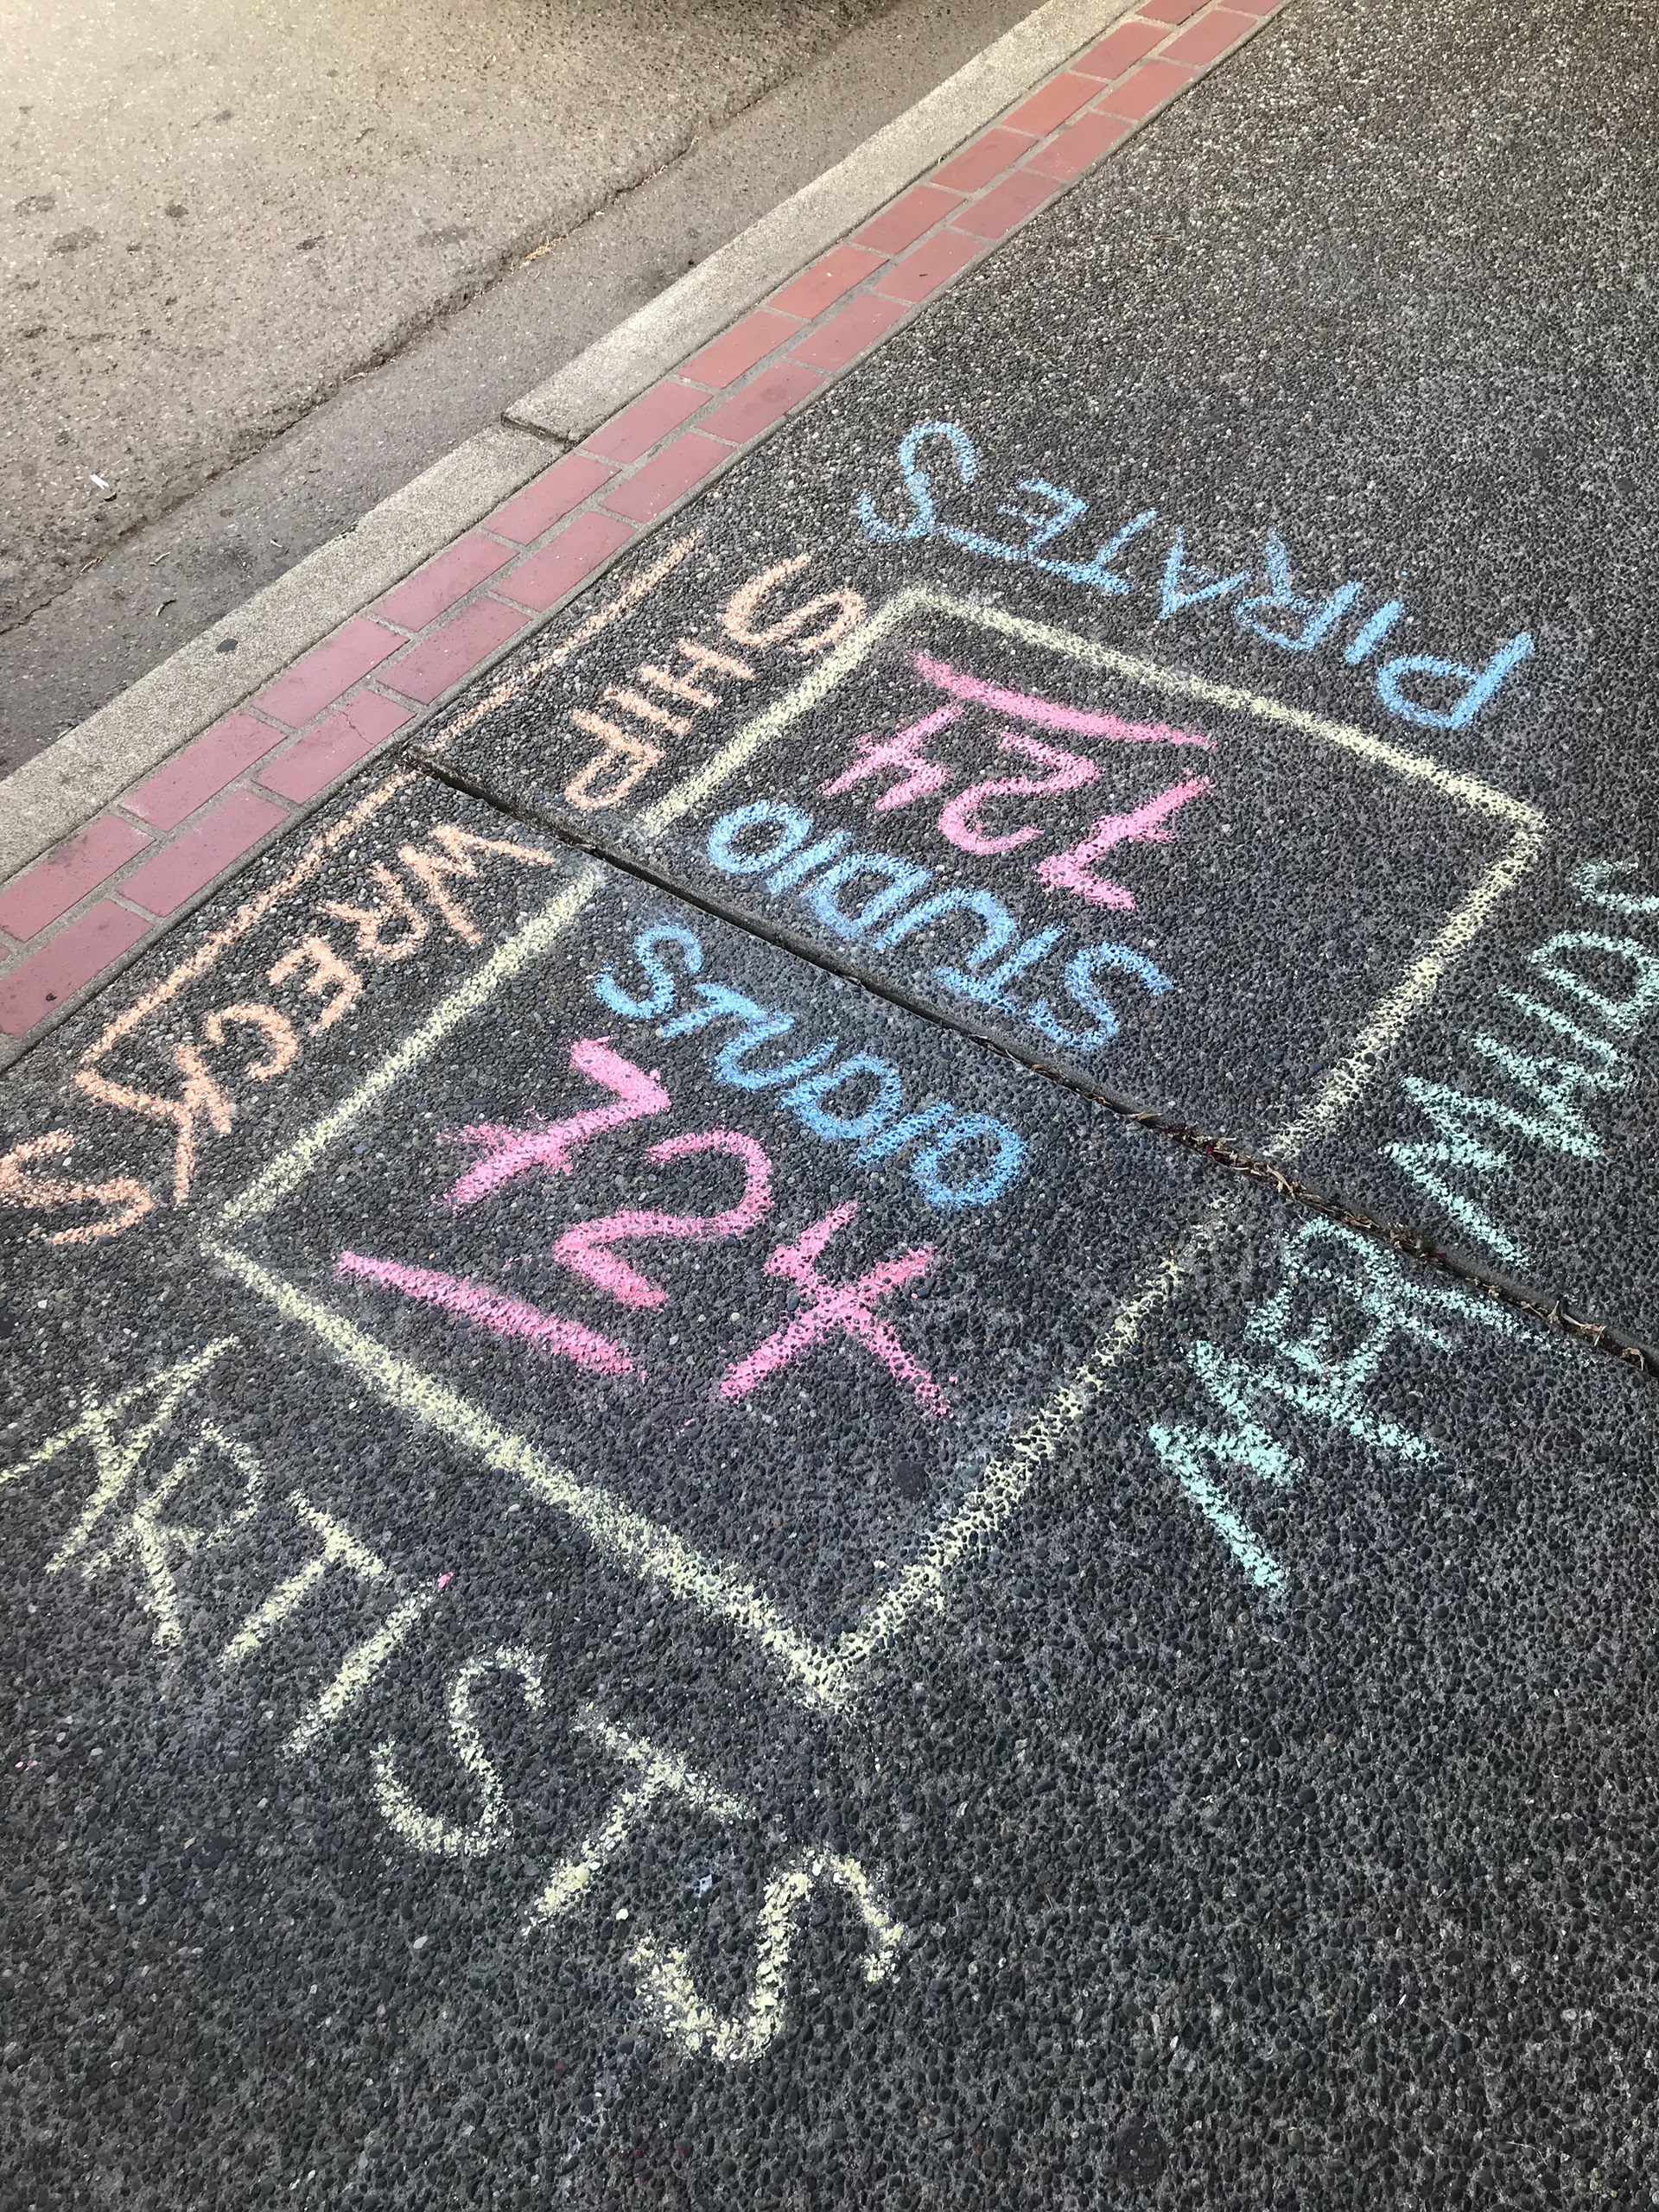 PIRATES
SHIP WRECKS
STUDIO
724
STUDIO
724
MERMAIDS
ARTISTS